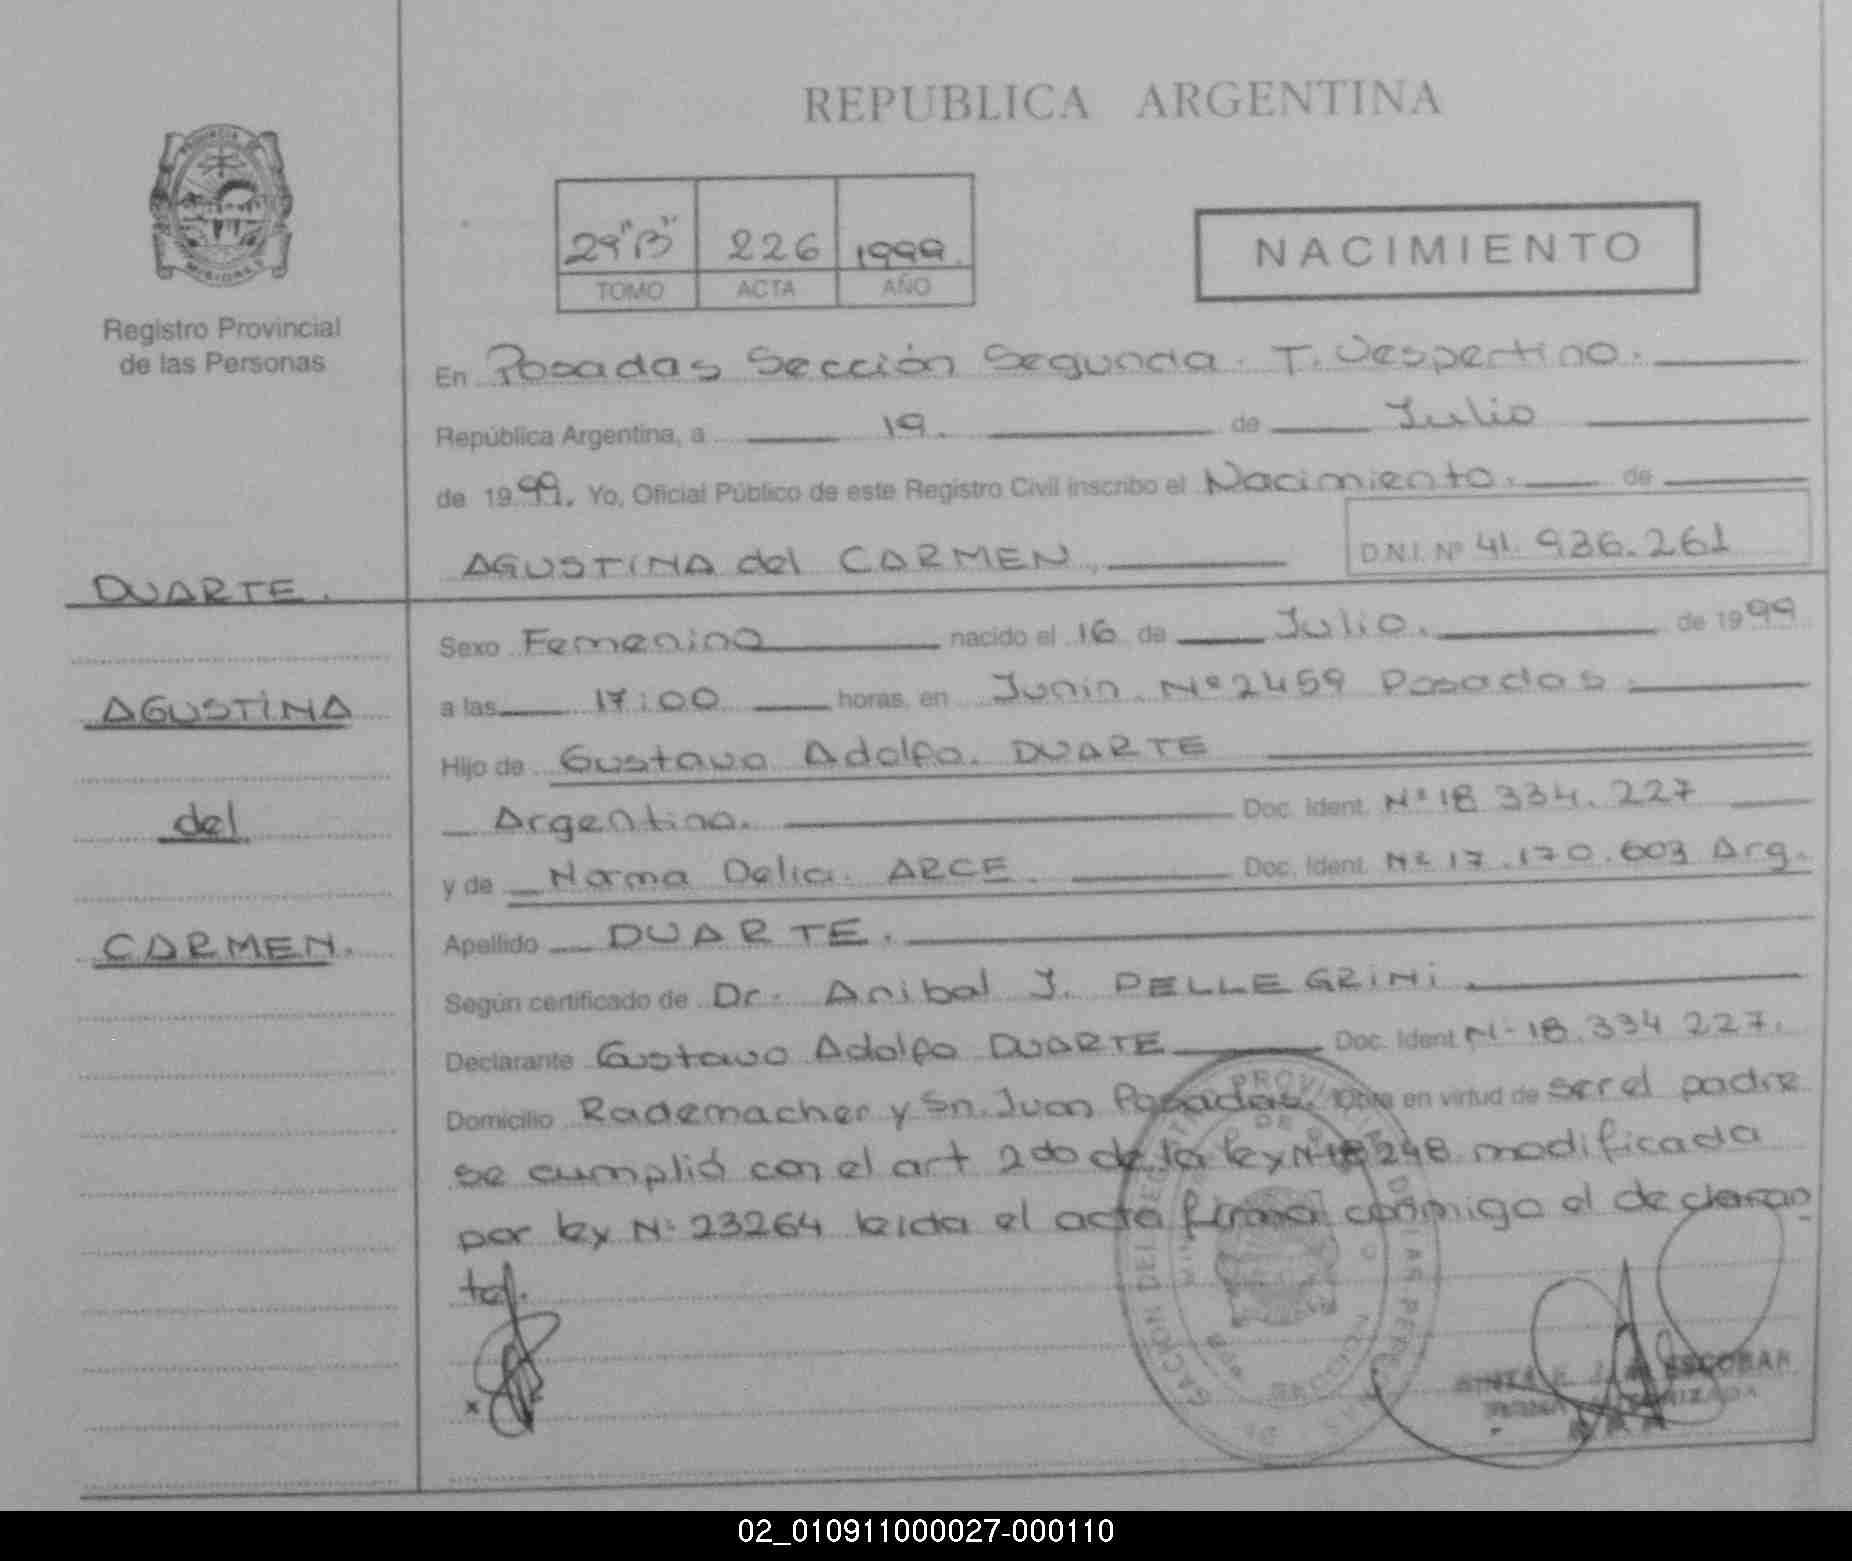 REPUBLICA ARGENTINA
PROVINCIA DE
MISIONES
Registro Provincial
de las Personas
29 "B" 226 1999
TOMO ACTA AÑO
NACIMIENTO
En Posadas Sección Segunda. T. Vespertino.
República Argentina, a 19. de Julio
de 1999. Yo, Oficial Público de este Registro Civil inscribo el Nacimiento. de
AGUSTINA del CARMEN,
D.N.I. Nº 41.936.261
DUARTE.
AGUSTINA
del
CARMEN.
Sexo Femenino nacido el 16 de Julio. de 1999
a las 17:00 horas, en Junin Nº 2459 Posadas.
Hijo de Gustavo Adolfo. DUARTE
Argentino. Doc. Ident. Nº 18 334.227
y de Norma Delia. ARCE. Doc. Ident. Nº 17.170.603 Arg.
Apellido DUARTE.
Según certificado de Dr. Anibal J. PELLEGRINI
Declarante Gustavo Adolfo DUARTE Doc. Ident Nº 18.334 227.
Domicilio Rademacher y Sn. Juan Posadas. Obra en virtud de ser el padre
se cumplió con el art 2do de la ley Nº 18248 modificada
por ley Nº 23264 leida el acta firma conmigo el declaran
te/.
x
ESCOBAR
02_010911000027-000110